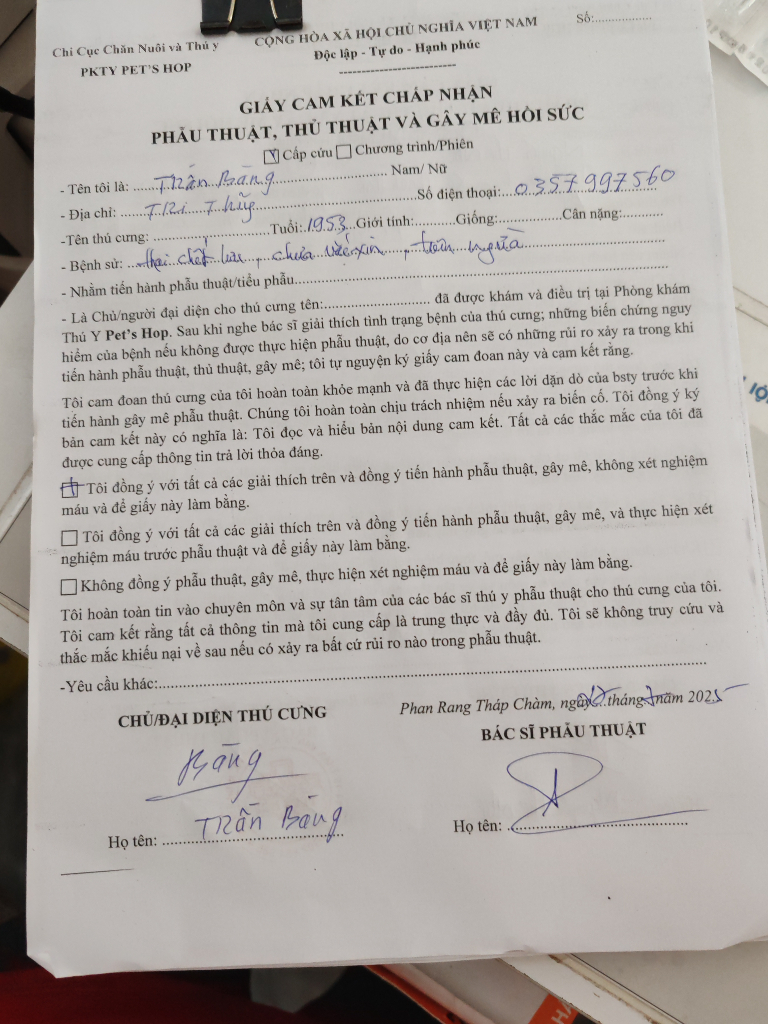 Chi Cục Chăn Nuôi và Thú y
PKTY PET'S HOP
CỘNG HÒA XÃ HỘI CHỦ NGHĨA VIỆT NAM
Độc lập - Tự do - Hạnh phúc
--------------------------
Số:................
GIẤY CAM KẾT CHẤP NHẬN
PHẪU THUẬT, THỦ THUẬT VÀ GÂY MÊ HỒI SỨC
Cấp cứu Chương trình/Phiên
- Tên tôi là: Trần Bàng Nam/ Nữ
- Địa chỉ: Tri Thủy Số điện thoại: 0357997560
-Tên thú cưng: ........................Tuổi: 1953 Giới tính:...........Giống:.................Cân nặng:...........
- Bệnh sử: thai chết lưu, chưa
- Nhằm tiến hành phẫu thuật/tiểu phẫu........................
- Là Chủ/người đại diện cho thú cưng tên:............................ đã được khám và điều trị tại Phòng khám
Thú Y Pet's Hop. Sau khi nghe bác sĩ giải thích tình trạng bệnh của thú cưng; những biến chứng nguy
hiểm của bệnh nếu không được thực hiện phẫu thuật, do cơ địa nên sẽ có những rủi ro xảy ra trong khi
tiến hành phẫu thuật, thủ thuật, gây mê; tôi tự nguyện ký giấy cam đoan này và cam kết rằng.
Tôi cam đoan thú cưng của tôi hoàn toàn khỏe mạnh và đã thực hiện các lời dặn dò của bsty trước khi
tiến hành gây mê phẫu thuật. Chúng tôi hoàn toàn chịu trách nhiệm nếu xảy ra biến cố. Tôi đồng ý ký
bản cam kết này có nghĩa là: Tôi đọc và hiểu bản nội dung cam kết. Tất cả các thắc mắc của tôi đã
được cung cấp thông tin trả lời thỏa đáng.
Tôi đồng ý với tất cả các giải thích trên và đồng ý tiến hành phẫu thuật, gây mê, không xét nghiệm
máu và để giấy này làm bằng.
Tôi đồng ý với tất cả các giải thích trên và đồng ý tiến hành phẫu thuật, gây mê, và thực hiện xét
nghiệm máu trước phẫu thuật và để giấy này làm bằng.
Không đồng ý phẫu thuật, gây mê, thực hiện xét nghiệm máu và để giấy này làm bằng.
Tôi hoàn toàn tin vào chuyên môn và sự tận tâm của các bác sĩ thú y phẫu thuật cho thú cưng của tôi.
Tôi cam kết rằng tất cả thông tin mà tôi cung cấp là trung thực và đầy đủ. Tôi sẽ không truy cứu và
thắc mắc khiếu nại về sau nếu có xảy ra bất cứ rủi ro nào trong phẫu thuật.
-Yêu cầu khác:........................
Phan Rang Tháp Chàm, ngày tháng năm 2025
CHỦ/ĐẠI DIỆN THÚ CƯNG
BÁC SĨ PHẪU THUẬT
Bàng
Họ tên: Trần Bàng
Họ tên: